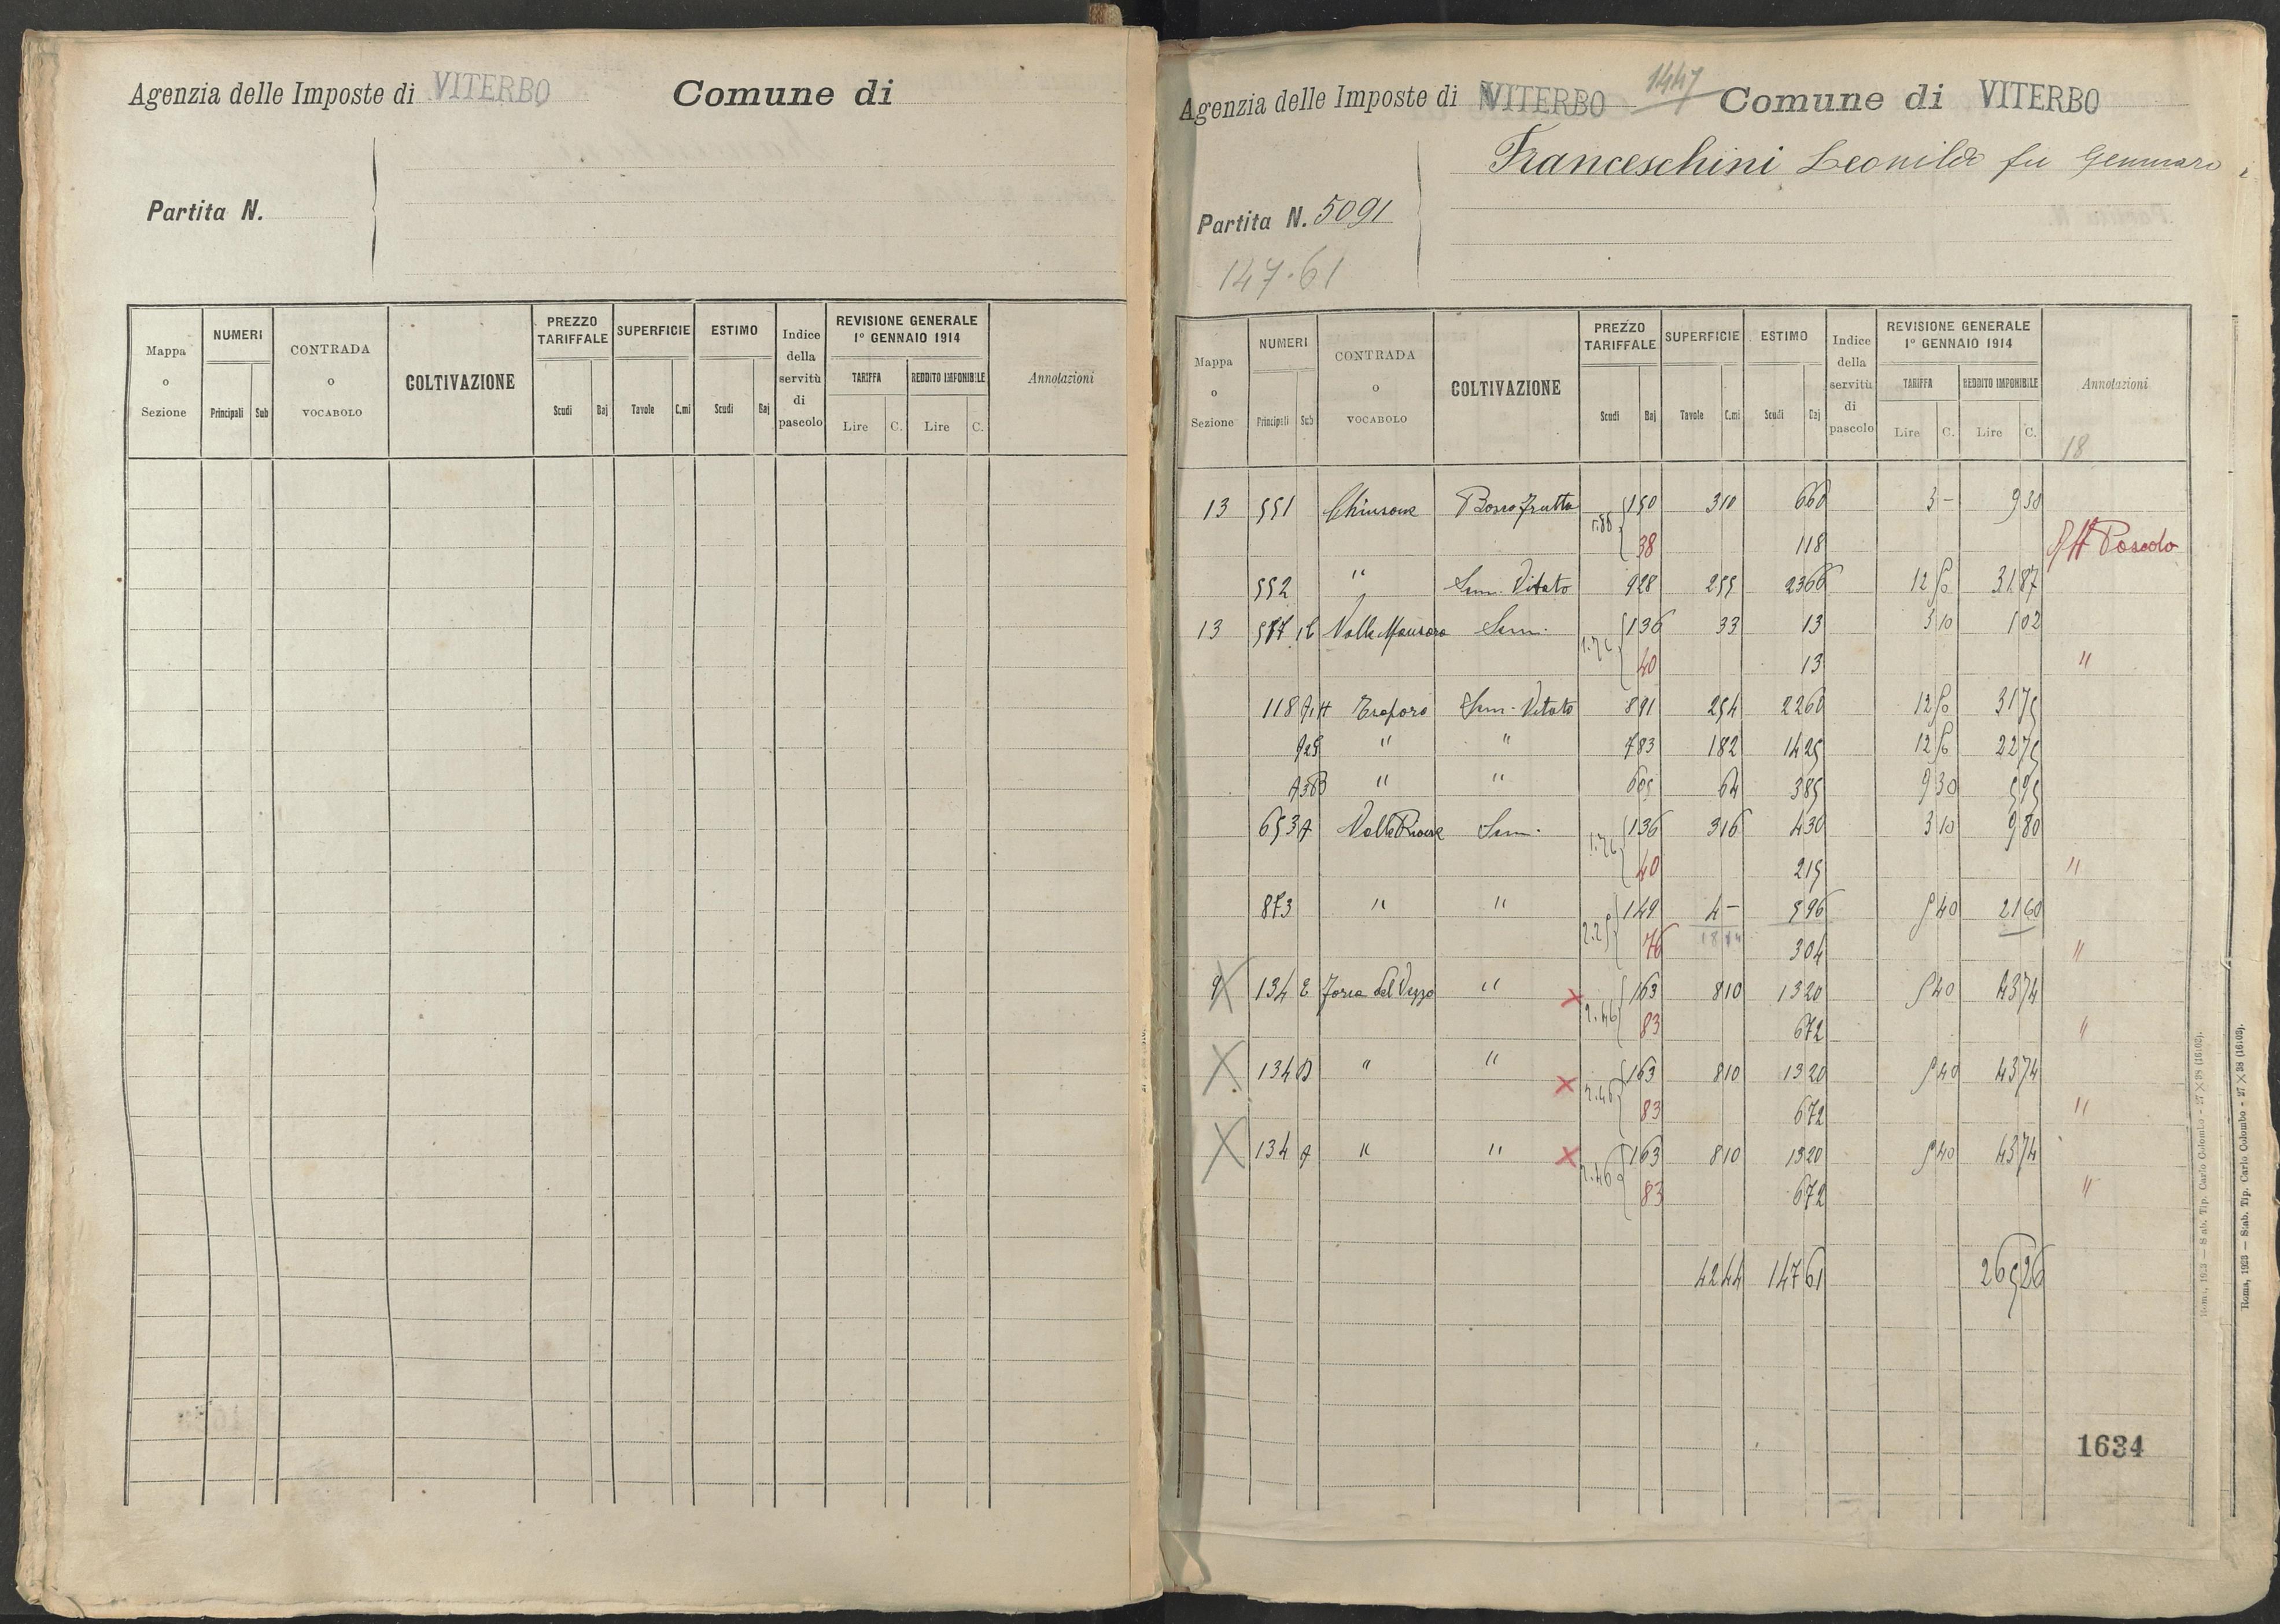 Agenzia delle Imposte di VITERBO Comune di
Partita N.
Mappa o Sezione NUMERI Principali Sub CONTRADA o VOCABOLO COLTIVAZIONE PREZZO TARIFFALE Scudi Baj SUPERFICIE Tavole C.mi ESTIMO Scudi Baj Indice della servitù di pascolo REVISIONE GENERALE 1º GENNAIO 1914 TARIFFA Lire C. REDDITO IMPONIBILE Lire C. Annotazioni
Agenzia delle Imposte di VITERBO 1447 Comune di VITERBO
Franceschini Leonilde fu Gennaro
Partita N. 5091
147.61
Mappa o Sezione NUMERI Principali Sub CONTRADA o VOCABOLO COLTIVAZIONE PREZZO TARIFFALE Scudi Baj SUPERFICIE Tavole C.mi ESTIMO Scudi Baj Indice della servitù di pascolo REVISIONE GENERALE 1º GENNAIO 1914 TARIFFA Lire C. REDDITO IMPONIBILE Lire C. Annotazioni
18
13 551 Bosco frutto 1.88 150 310 660 3 - 9 30
38 118 Pascolo
552 " Sem. Vitato 928 255 2366 12 50 31 87
13 Sem. 1.76 136 33 13 3 10 1 02
40 13 "
118 Sem. Vitato 891 254 2260 12 50 31 75
" " 783 182 1425 12 50 22 75
" " 605 64 385 9 30 5 95
653 A Sem. 1.76 136 316 430 3 10 9 80
40 215 "
873 " " 2.25 149 4 - 596 5 40 21 60
76 304 "
9 134 E " 2.46 163 810 1320 5 40 43 74
83 672 "
134 D " " 2.46 163 810 1320 5 40 43 74
83 672 "
134 A " " 2.46 163 810 1320 5 40 43 74
83 672 "
42 44 147 61 265 26
1634
Roma, 1923 — Stab. Tip. Carlo Colombo - 27 × 38 (16:03).
Roma, 1923 — Stab. Tip. Carlo Colombo - 27 × 38 (16:03).